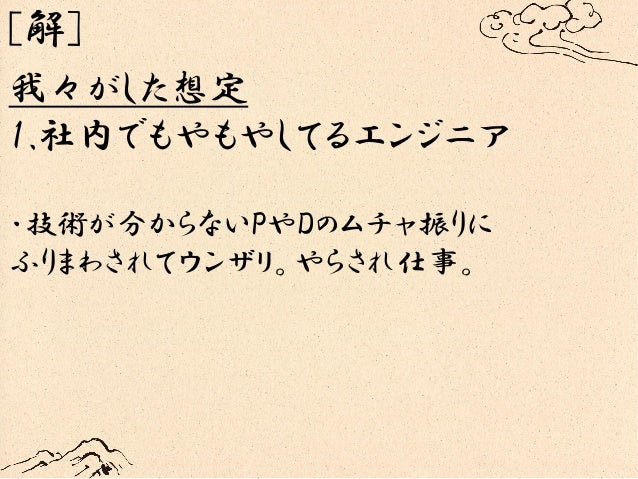 [解]
我々がした想定
1.社内でもやもやしてるエンジニア
・技術が分からないPやDのムチャ振りに
ふりまわされてウンザリ。やらされ仕事。